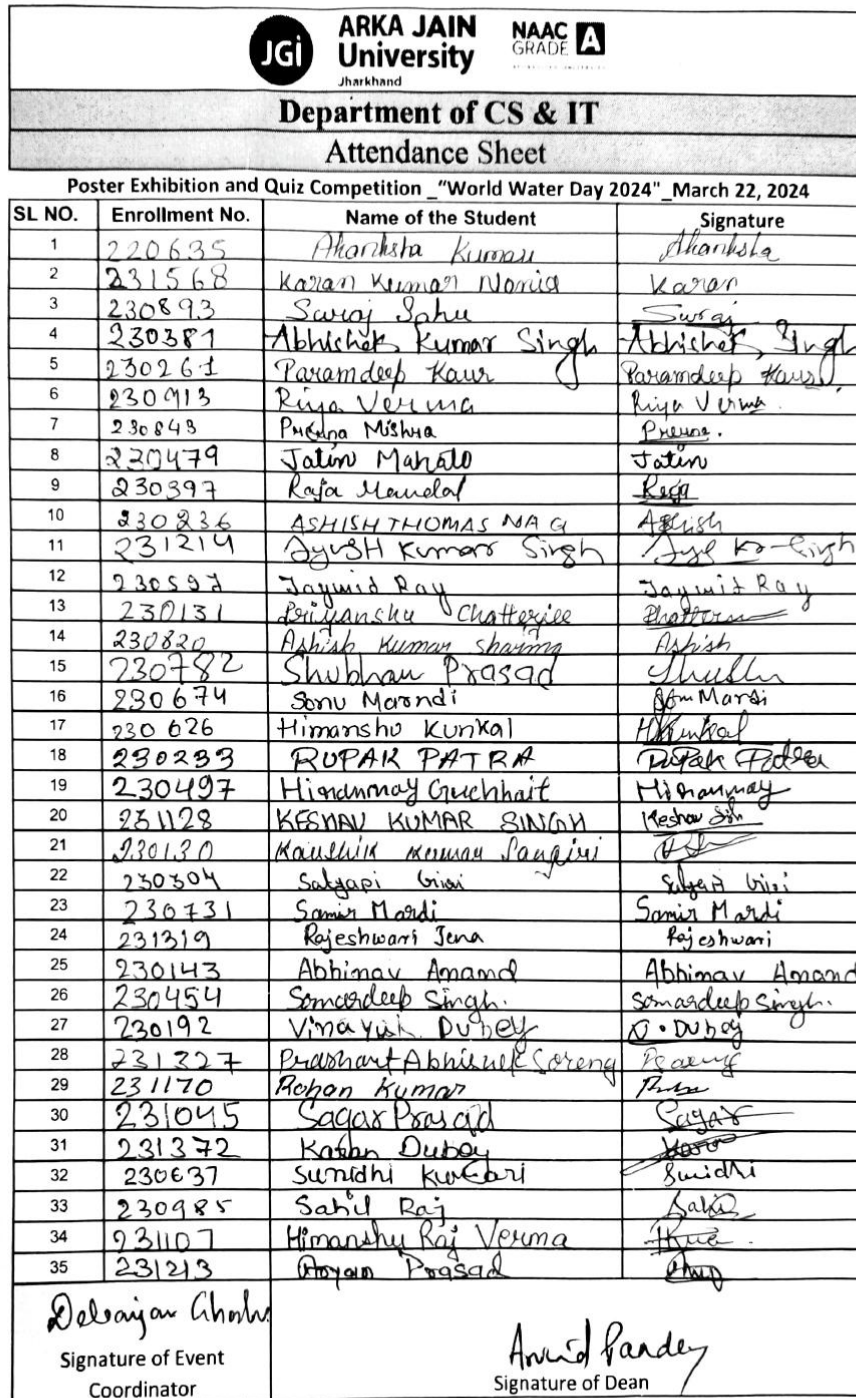 JGi ARKA JAIN University Jharkhand NAAC GRADE A
Department of CS & IT
Attendance Sheet
Poster Exhibition and Quiz Competition _"World Water Day 2024"_March 22, 2024
SL NO. Enrollment No. Name of the Student Signature
1 220635 Akanksha Kumari Akanksha
2 231568 Karan Kumar Nonia Karan
3 230893 Suraj Sahu Suraj
4 230381 Abhishek Kumar Singh Abhishek Singh
5 230261 Paramdeep Kaur Paramdeep Kaur
6 230913 Riya Verma Riya Verma.
7 230843 Prerna Mishra Prerna.
8 230479 Jatin Mahato Jatin
9 230397 Raja Mandal Raja
10 230236 ASHISH THOMAS NAG Ashish
11 231214 AyusH Kumar Singh
12 230597 Jaymit Ray Jaymit Ray
13 230131 Priyanshu Chatterjee
14 230820 Ashish Kumar Sharma Ashish
15 230782 Shubham Prasad
16 230674 Sonu Marndi Sonu Mardi
17 230626 Himanshu Kunkal HKunkal
18 230233 RUPAK PATRA Rupak Patra
19 230497 Hiranmay Guchhait Hiranmay
20 231128 KESHAV KUMAR SINGH Keshav
21 230130 Kaushik Kumar
22 230304 Satyapi Giri Satyapi Giri
23 230731 Samir Mardi Samir Mardi
24 231319 Rajeshwari Jena Rajeshwari
25 230143 Abhinav Anand Abhinav Anand
26 230454 Somardeep Singh. Somardeep Singh.
27 230192 Vinayak Dubey V. Dubey
28 231327 Prashant Abhishek Soreng
29 231170 Rohan Kumar
30 231045 Sagar Prasad Sagar
31 231372 Karan Dubey
32 230637 Sunidhi Kumari Sunidhi
33 230985 Sahil Raj Sahil
34 231107 Himanshu Raj Verma
35 231213 Aryan Prasad
Debanjan Ghosh
Arvind Pandey
Signature of Event Coordinator
Signature of Dean